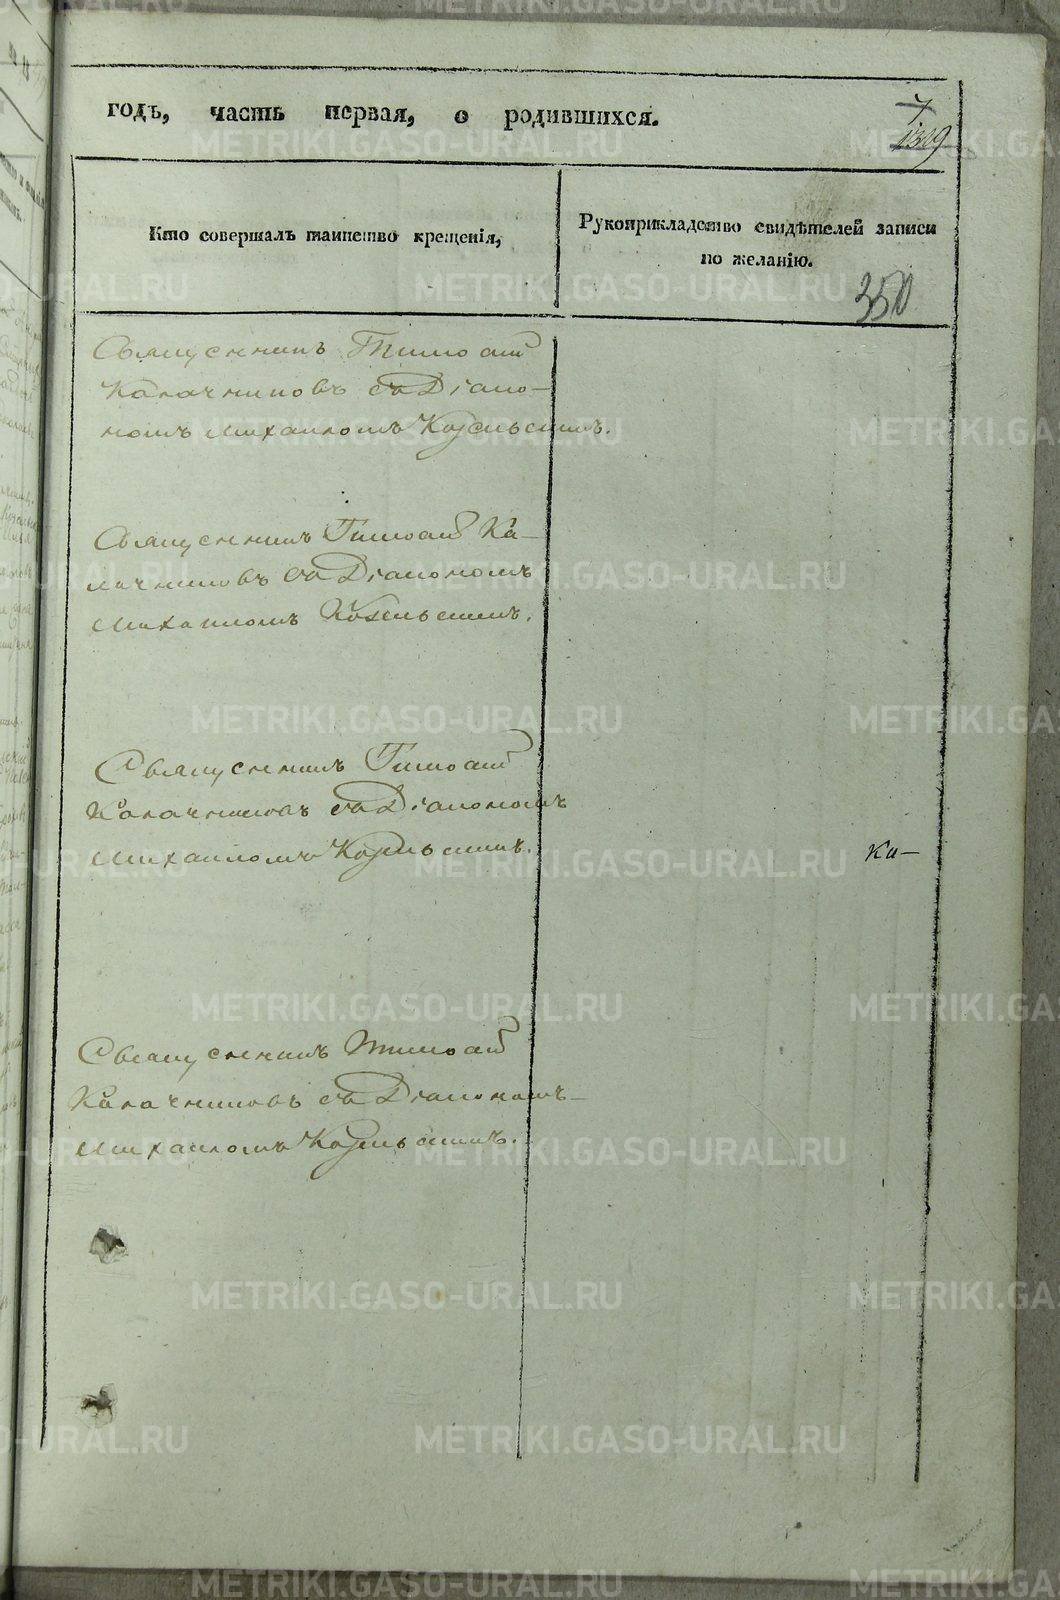 годъ, часть первая, о родившихся.
7
1319
Кто совершалъ таинство крещенія,
Рукоприкладство свидѣтелей записи
по желанію.
350
Священникъ Тимоѳей
Калачниковъ съ Діако-
номъ Михаиломъ Козельскимъ.
Священникъ Тимоѳей Ка-
лачниковъ съ Діакономъ
Михаиломъ Козельскимъ.
Священникъ Тимоѳей
Калачниковъ съ Діакономъ
Михаиломъ Козельскимъ.
Ка-
Священникъ Тимоѳей
Калачниковъ съ Діакономъ
Михаиломъ Козельскимъ.
METRIKI.GASO-URAL.RU